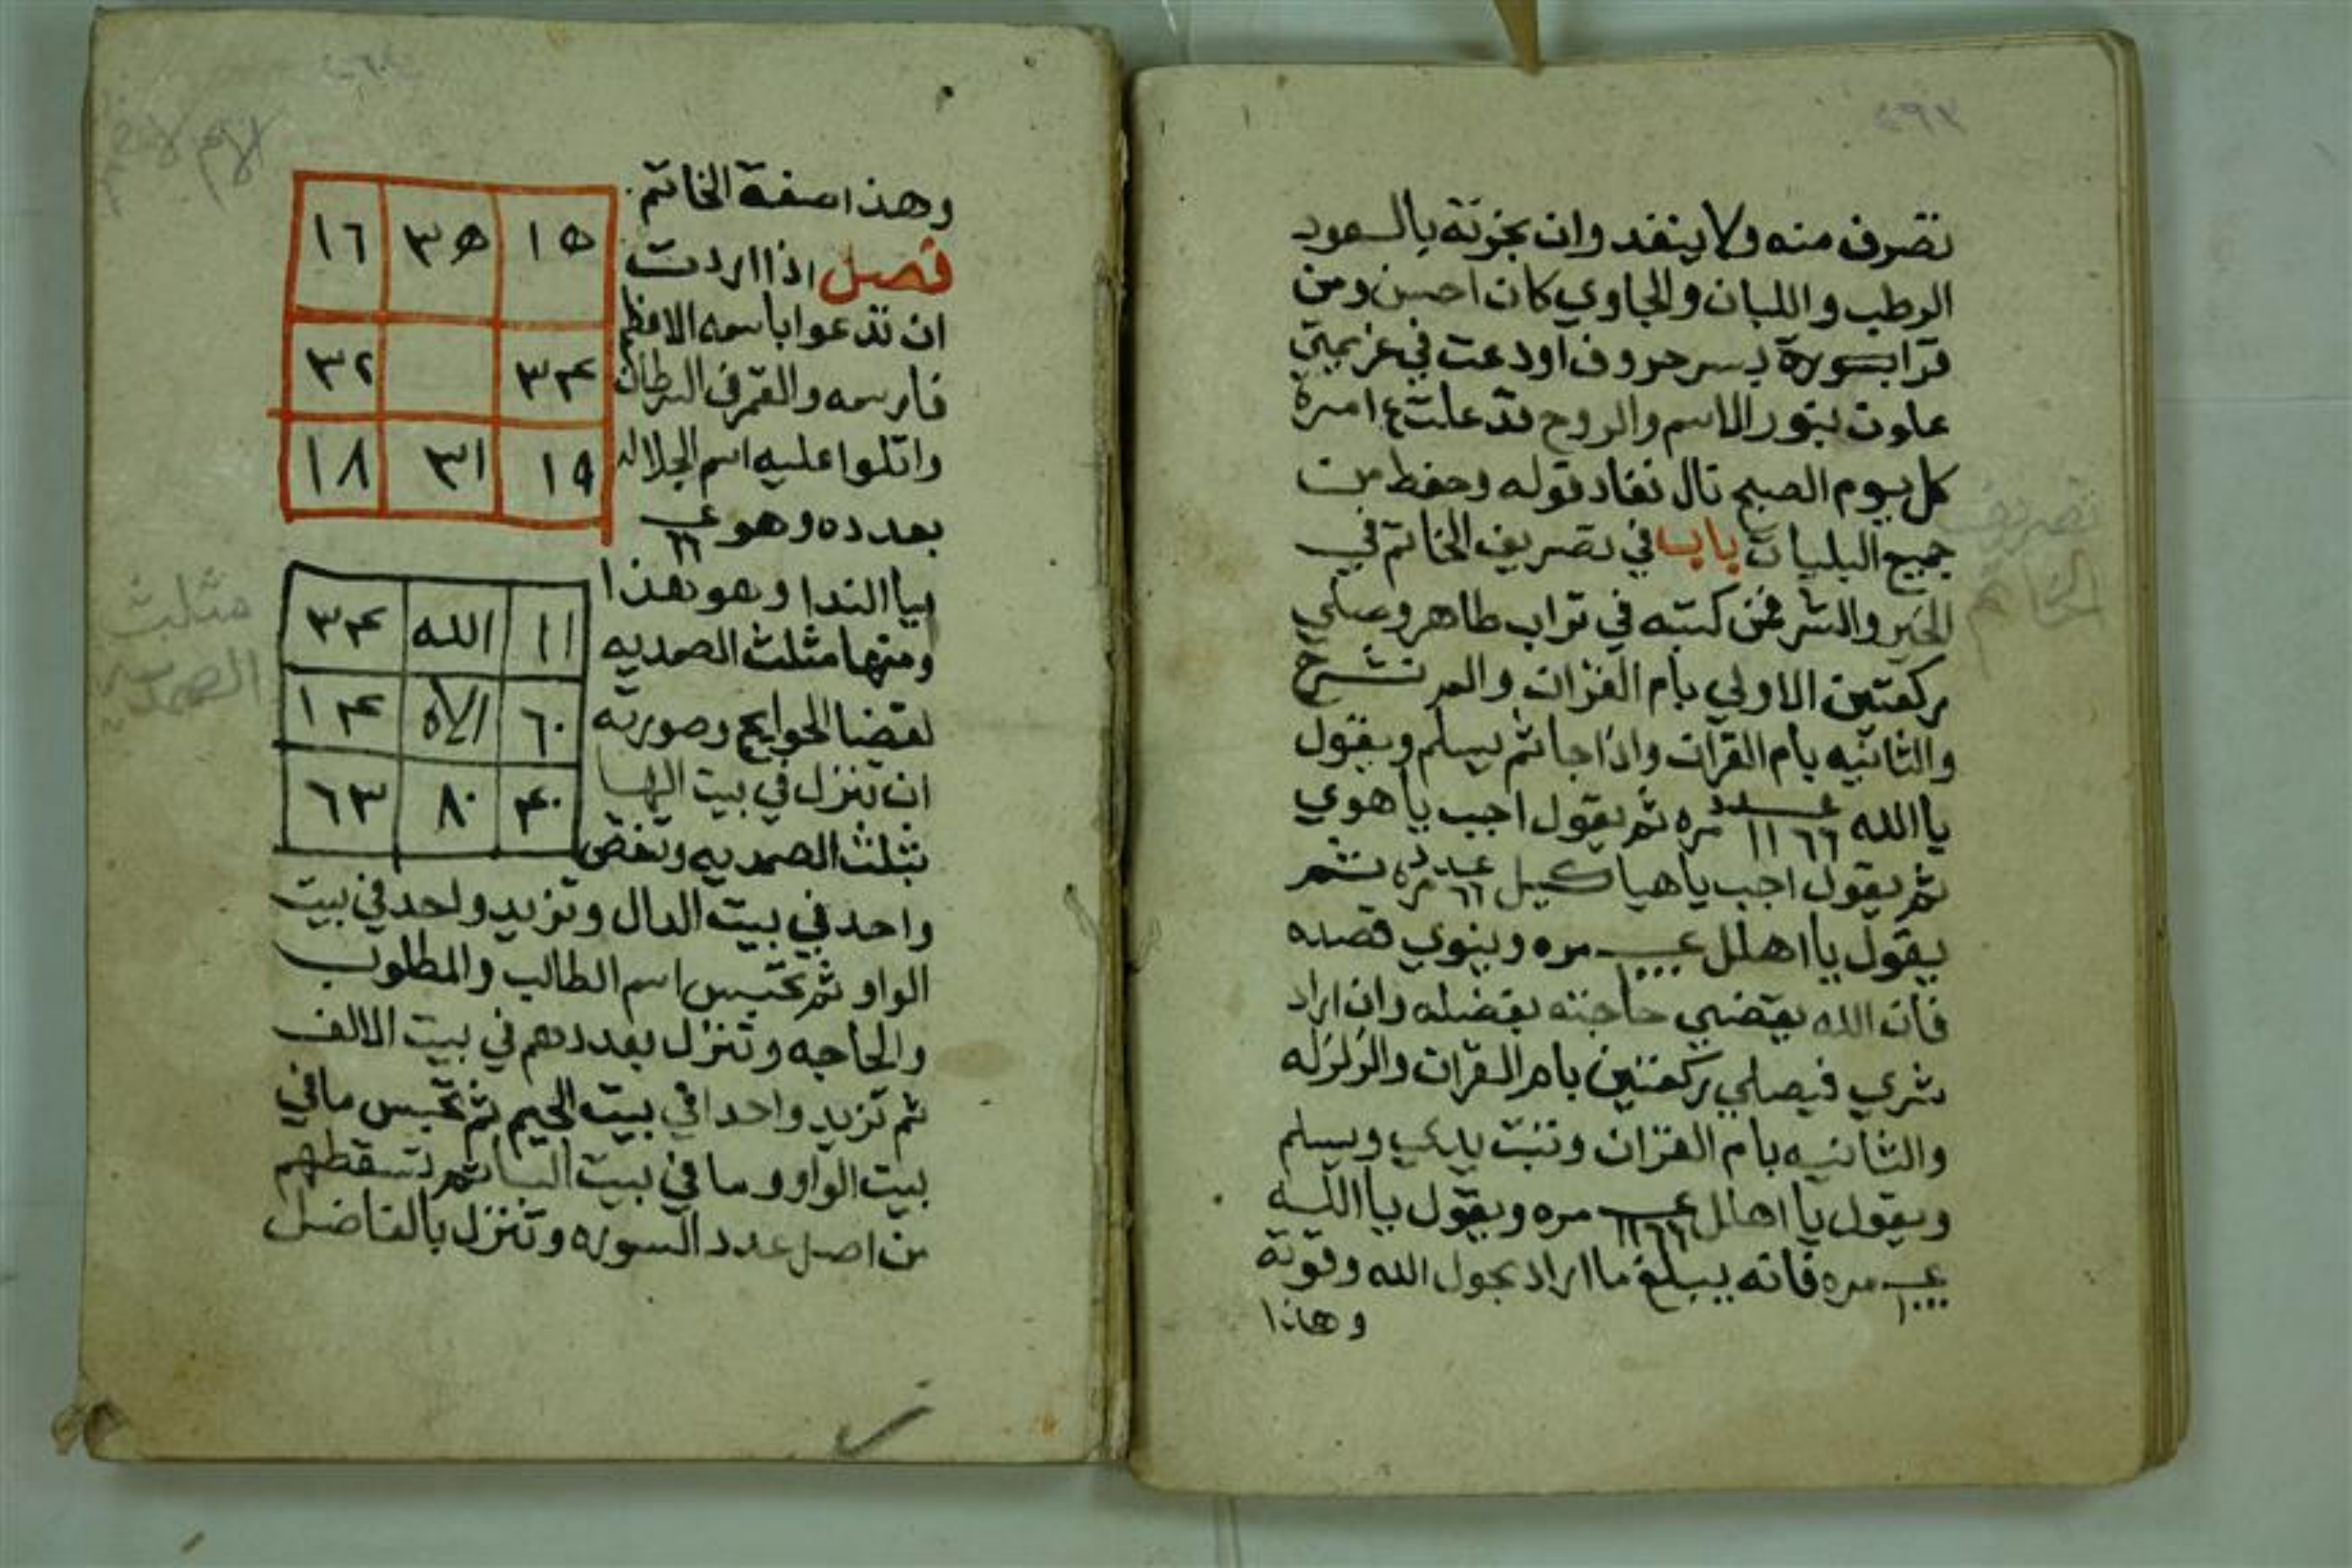 تصرف منه ولا ينفد وان بخرته بالعود
الرطب واللبان والجاوي كان احسن ومن
قرا بسورة بسر حروف اودعت في عزيمتي
علوت بنور الاسم والروح قد علت امره
كل يوم الصبح نال نفاد قوله وحفظ من
جميع البليات باب في تصريف الخاتم في
الخير والشر فمن كتبه في تراب طاهر وصلي
ركعتين الاولي بام القران والم نشرح
والثانيه بام القران واذا جا ثم يسلم ويقول
يا الله عدد ١١٦٦ مره ثم يقول اجب يا هوي
ثم يقول اجب يا هياكيل عدد ٦٦ مره ثم
يقول يا اهلل عـ ١٠٠٠ مره وينوي قصده
فان الله يقضي حاجته بفضله وان اراد
شري فيصلي ركعتين بام القران والزلزله
والثانيه بام القران وتبت يدي ويسلم
ويقول يا اهلل عـ ١١٦٦ مره ويقول يا الله
عـ ١٠٠٠ مره فانه يبلغ ما اراد بحول الله وقوته
وهاذا
تصريف
الخاتم
وهذا صفة الخاتم
فصل اذا اردت
ان تدعوا باسمه الاعظم
فارسمه والقمر في السرطان
واتلوا عليه اسم الجلاله
بعدده وهو عـ ٦٦
بيا الندا وهو هذا
ومنها مثلث الصمديه
لقضا الحوايج وصورته
ان تنزل في بيت الها
بثلث الصمديه وتنقص
واحد في بيت الدال وتزيد واحد في بيت
الواو ثم تحبس اسم الطالب والمطلوب
والحاجه وتنزل بعددهم في بيت الالف
ثم تزيد واحدا في بيت الجيم ثم تحبس ما في
بيت الواو وما في بيت البا ثم تسقطهم
من اصل عدد السوره وتنزل بالفاضل
١٥ ٣٥ ١٦
٣٤ ٣٢
١٩ ٣١ ١٨
١١ الله ٣٤
٦٠ الاه ١٤
٤٠ ٨٠ ٦٣
مثلث
الصمديه